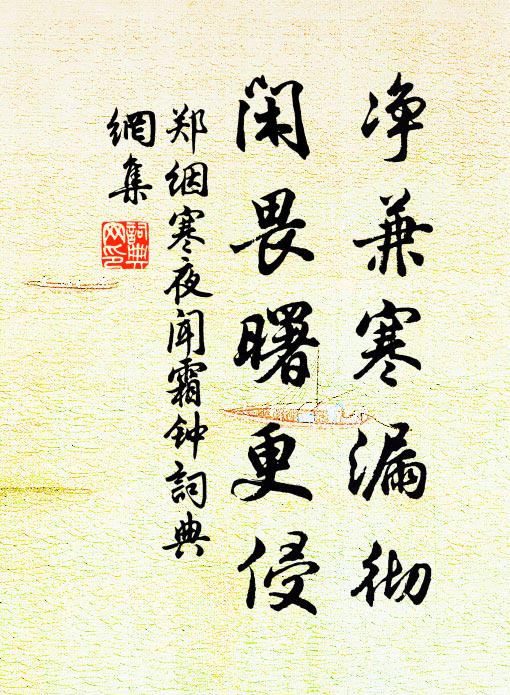 净兼寒漏彻
闲畏曙更侵
郑絪寒夜闻霜钟词典
网集
词典网印